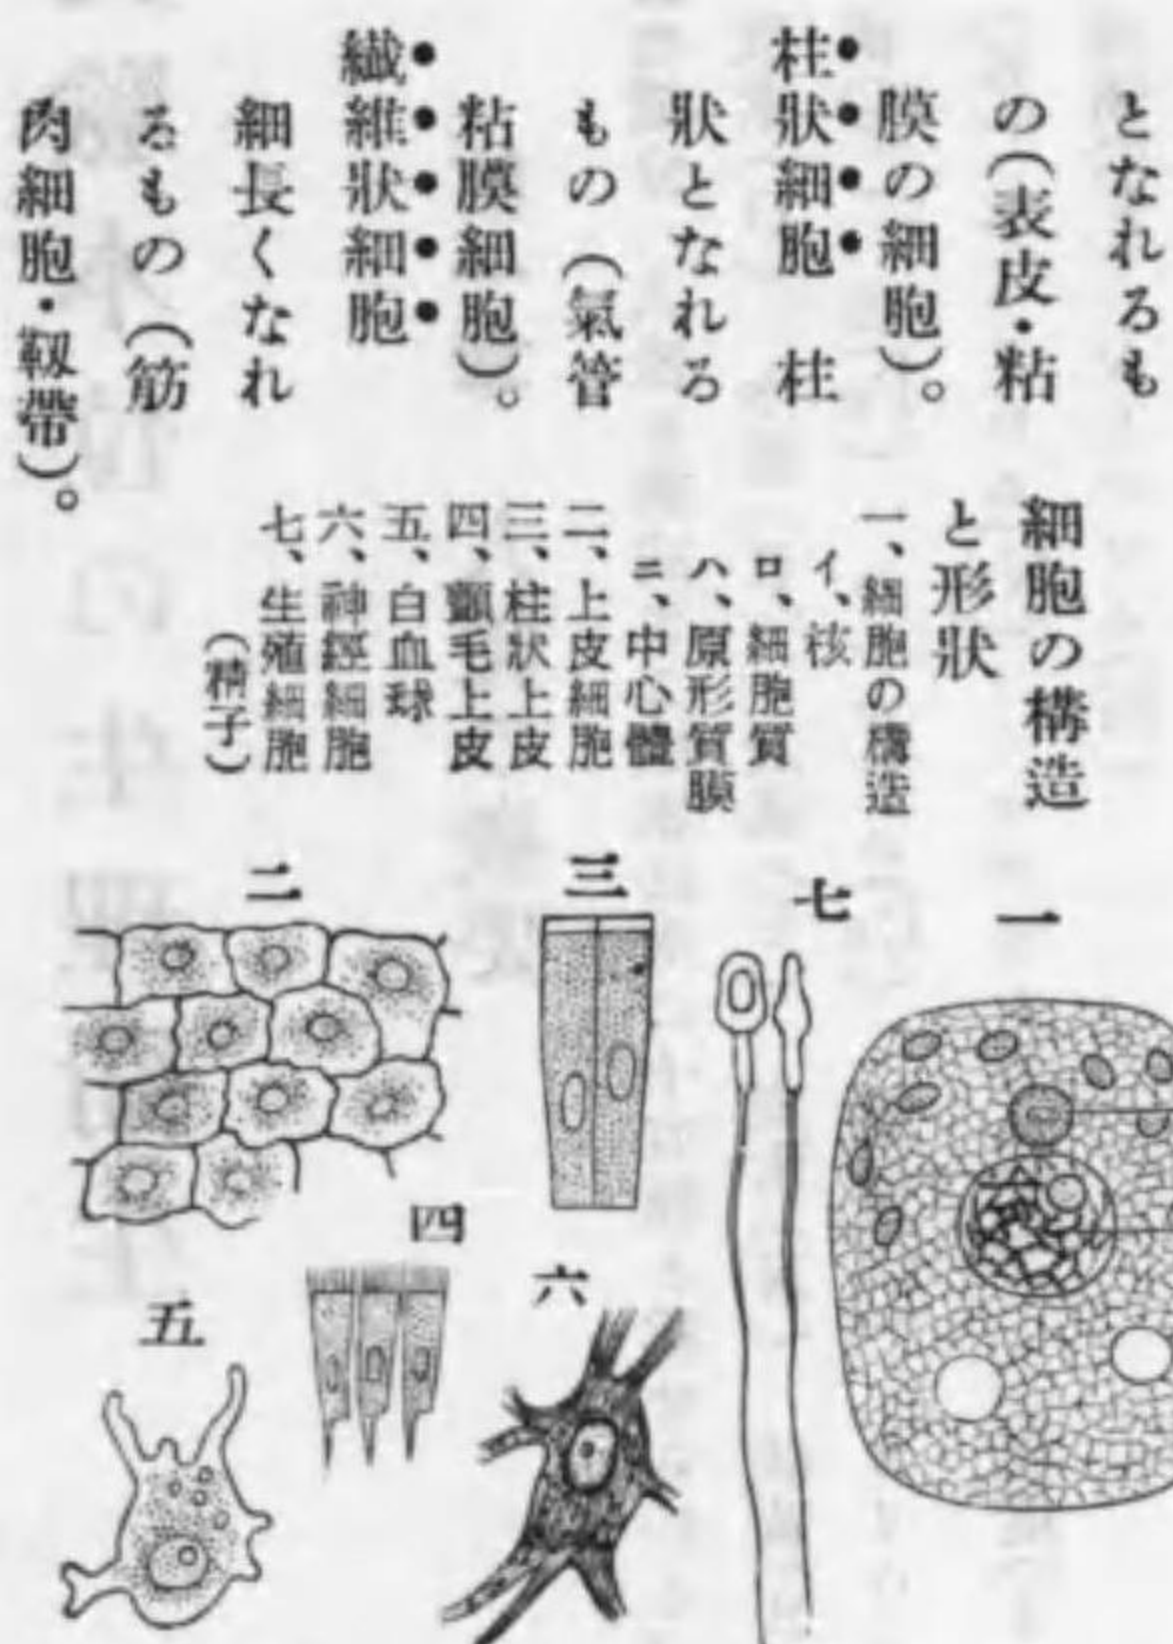 となれるも
の(表皮・粘
膜の細胞)。
柱狀細胞　柱
狀となれる
もの(氣管
粘膜細胞)。
纎維狀細胞
細長くなれ
るもの(筋
肉細胞・靱帶)。
細胞の構造
と形狀
一、細胞の構造
イ、核
ロ、細胞質
ハ、原形質膜
ニ、中心體
二、上皮細胞
三、柱狀上皮
四、顫毛上皮
五、白血球
六、神經細胞
七、生殖細胞
(精子)
一
七
三
二
四
六
五